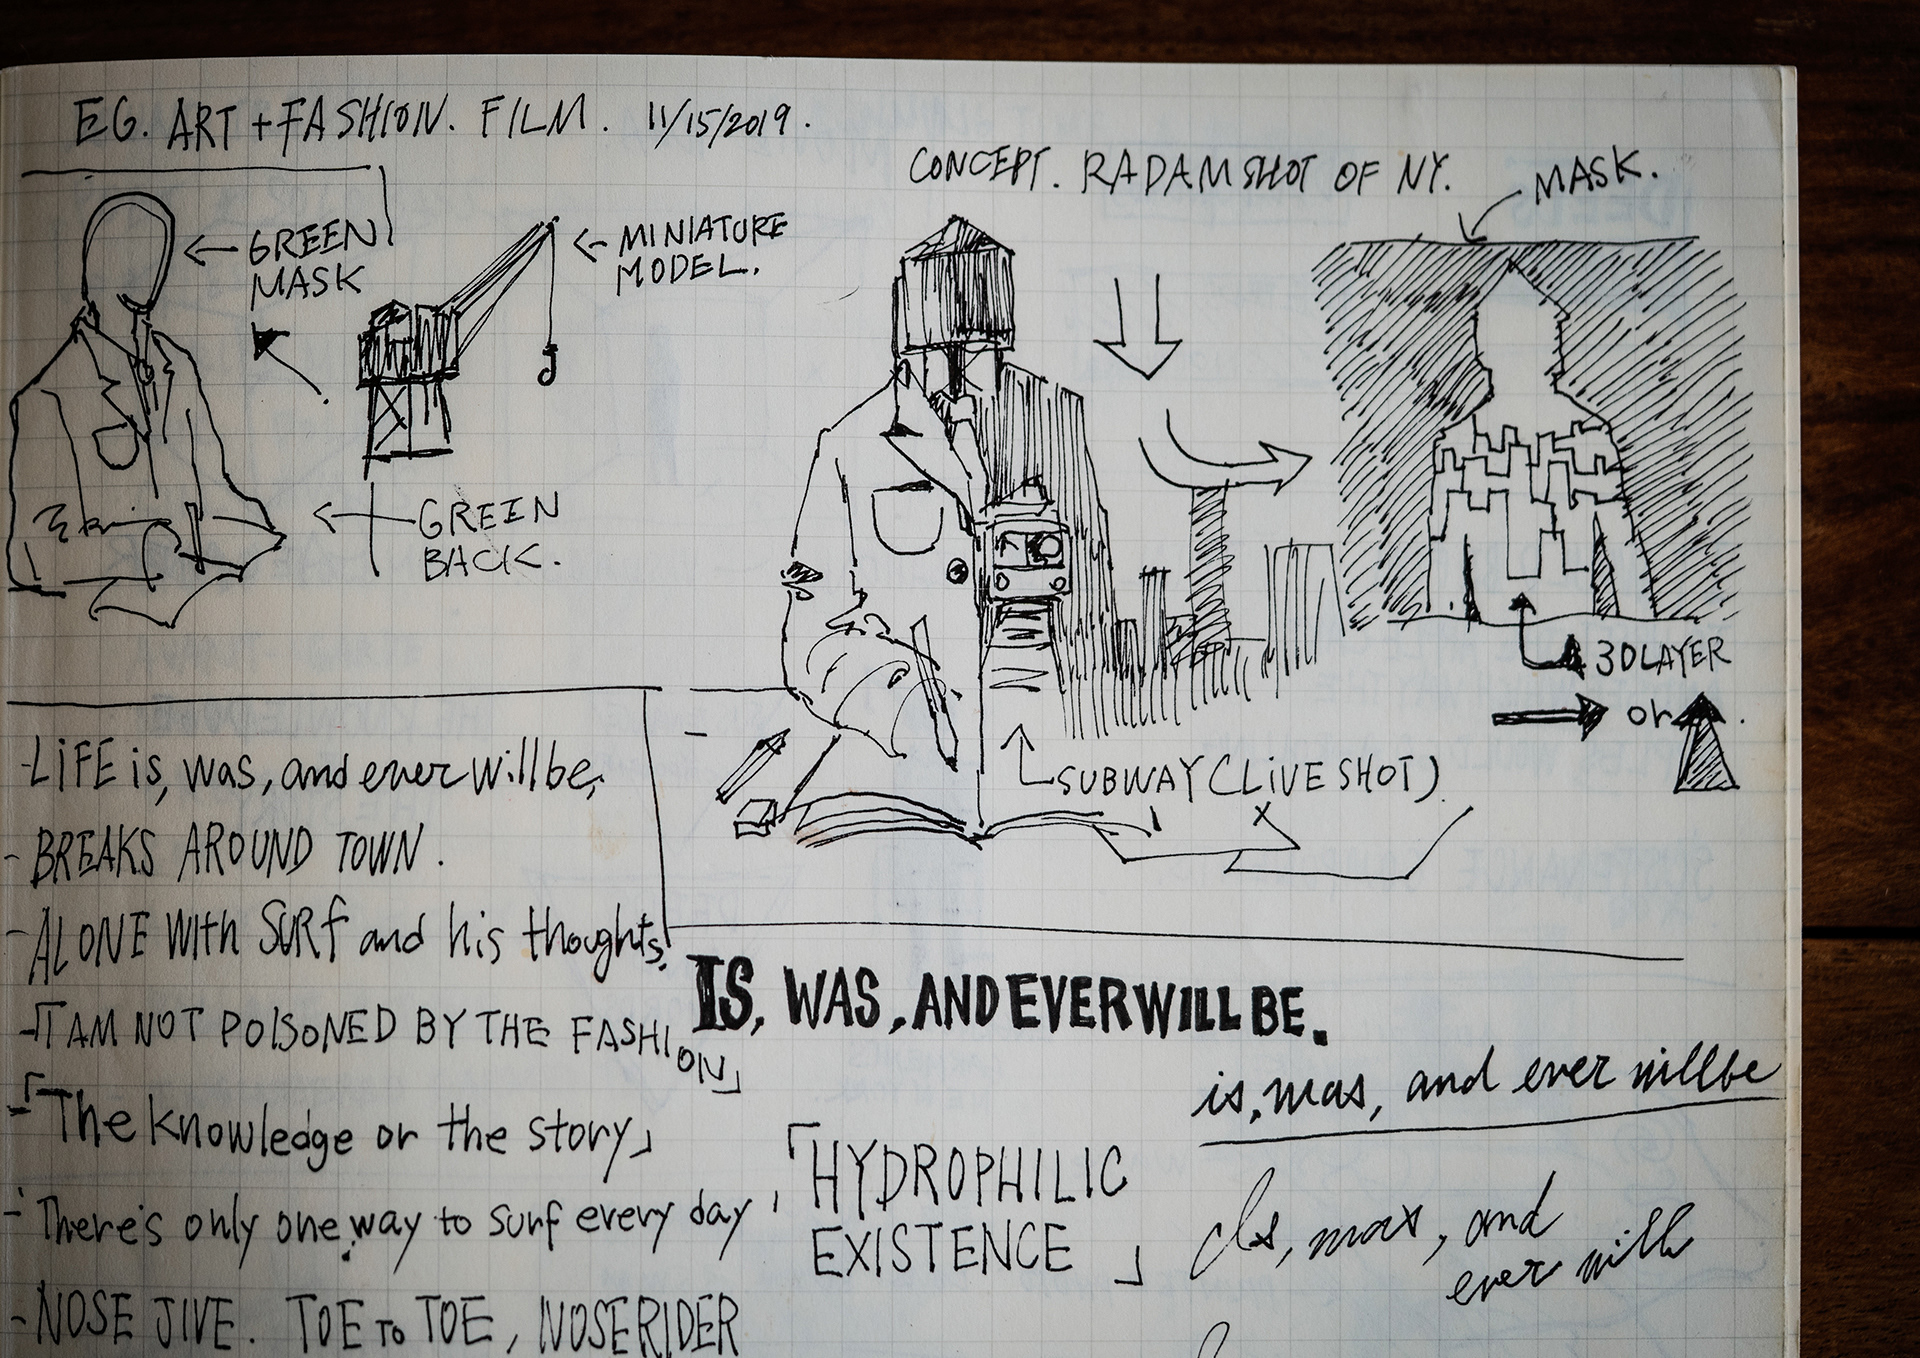 EG. ART + FASHION. FILM. 11/15/2019.
CONCEPT. RADAM SHOT OF NY.
MASK.
GREEN
MASK
MINIATURE
MODEL.
GREEN
BACK.
3D LAYER
or
SUBWAY (LIVE SHOT)
- LIFE is, was, and ever will be,
- BREAKS AROUND TOWN.
- ALONE WITH SURF and his thoughts.
-「I AM NOT POISONED BY THE FASHION」
-「The knowledge or the story」
- There's only one way to surf every day,
- NOSE JIVE. TOE TO TOE, NOSERIDER
IS, WAS, AND EVER WILL BE.
is, was, and ever will be
「HYDROPHILIC
EXISTENCE」
Is, was, and
ever will